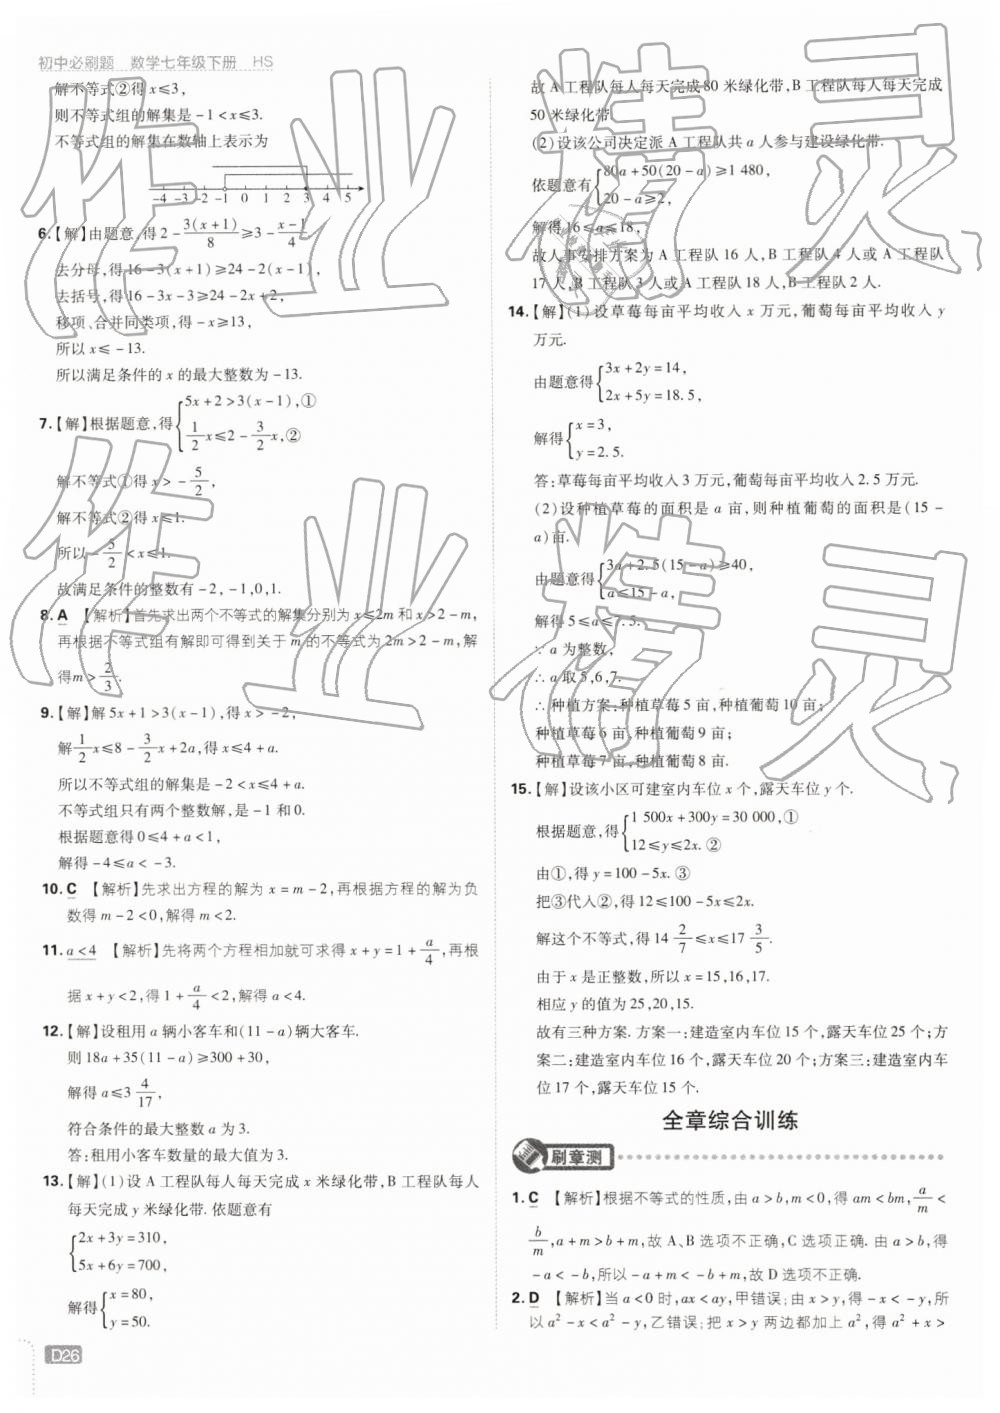 初中必刷题 数学七年级下册 HS
解不等式②得x≤3,
则不等式组的解集是-1<x≤3.
不等式组的解集在数轴上表示为
-4 -3 -2 -1 0 1 2 3 4 5
6.【解】由题意,得2-\frac{3(x+1)}{8}≥3-\frac{x-1}{4}.
去分母,得16-3(x+1)≥24-2(x-1),
去括号,得16-3x-3≥24-2x+2,
移项、合并同类项,得-x≥13,
所以x≤-13.
所以满足条件的x的最大整数为-13.
7.【解】根据题意,得{5x+2>3(x-1),①
\frac{1}{2}x≤2-\frac{3}{2}x,②
解不等式①得x>-\frac{5}{2},
解不等式②得x≤1.
所以-\frac{5}{2}<x≤1.
故满足条件的整数有-2,-1,0,1.
8. A 【解析】首先求出两个不等式的解集分别为x≤2m和x>2-m,
再根据不等式组有解即可得到关于m的不等式为2m>2-m,解
得m>\frac{2}{3}.
9.【解】解5x+1>3(x-1),得x>-2,
解\frac{1}{2}x≤8-\frac{3}{2}x+2a,得x≤4+a.
所以不等式组的解集是-2<x≤4+a.
不等式组只有两个整数解,是-1和0.
根据题意得0≤4+a<1,
解得-4≤a<-3.
10. C 【解析】先求出方程的解为x=m-2,再根据方程的解为负
数得m-2<0,解得m<2.
11. a<4 【解析】先将两个方程相加就可求得x+y=1+\frac{a}{4},再根
据x+y<2,得1+\frac{a}{4}<2,解得a<4.
12.【解】设租用a辆小客车和(11-a)辆大客车.
则18a+35(11-a)≥300+30,
解得a≤3\frac{4}{17},
符合条件的最大整数a为3.
答:租用小客车数量的最大值为3.
13.【解】(1)设A工程队每人每天完成x米绿化带,B工程队每人
每天完成y米绿化带.依题意有
{2x+3y=310,
5x+6y=700,
解得{x=80,
y=50.
D26
故A工程队每人每天完成80米绿化带,B工程队每人每天完成
50米绿化带.
(2)设该公司决定派A工程队共a人参与建设绿化带.
依题意有{80a+50(20-a)≥1 480,
20-a≥2,
解得16≤a≤18,
故人事安排方案为A工程队16人,B工程队4人或A工程队
17人,B工程队3人或A工程队18人,B工程队2人.
14.【解】(1)设草莓每亩平均收入x万元,葡萄每亩平均收入y
万元.
由题意得{3x+2y=14,
2x+5y=18.5,
解得{x=3,
y=2.5.
答:草莓每亩平均收入3万元,葡萄每亩平均收入2.5万元.
(2)设种植草莓的面积是a亩,则种植葡萄的面积是(15-
a)亩.
由题意得{3a+2.5(15-a)≥40,
a≤15-a,
解得5≤a≤7.5.
∵a为整数,
∴a取5,6,7.
∴种植方案:种植草莓5亩,种植葡萄10亩;
种植草莓6亩,种植葡萄9亩;
种植草莓7亩,种植葡萄8亩.
15.【解】设该小区可建室内车位x个,露天车位y个.
根据题意,得{1 500x+300y=30 000,①
12≤y≤2x. ②
由①,得y=100-5x. ③
把③代入②,得12≤100-5x≤2x.
解这个不等式,得14\frac{2}{7}≤x≤17\frac{3}{5}.
由于x是正整数,所以x=15,16,17.
相应y的值为25,20,15.
故有三种方案.方案一:建造室内车位15个,露天车位25个;方
案二:建造室内车位16个,露天车位20个;方案三:建造室内车
位17个,露天车位15个.
全章综合训练
刷章测
1. C 【解析】根据不等式的性质,由a>b,m<0,得am<bm,\frac{a}{m}<
\frac{b}{m},a+m>b+m,故A、B选项不正确,C选项正确.由a>b,得
-a<-b,所以-a+m<-b+m,故D选项不正确.
2. D 【解析】当a<0时,ax<ay,甲错误;由x>y,得-x<-y,所
以a²-x<a²-y,乙错误;把x>y两边都加上a²,得a²+x>
作业精灵
作业精灵